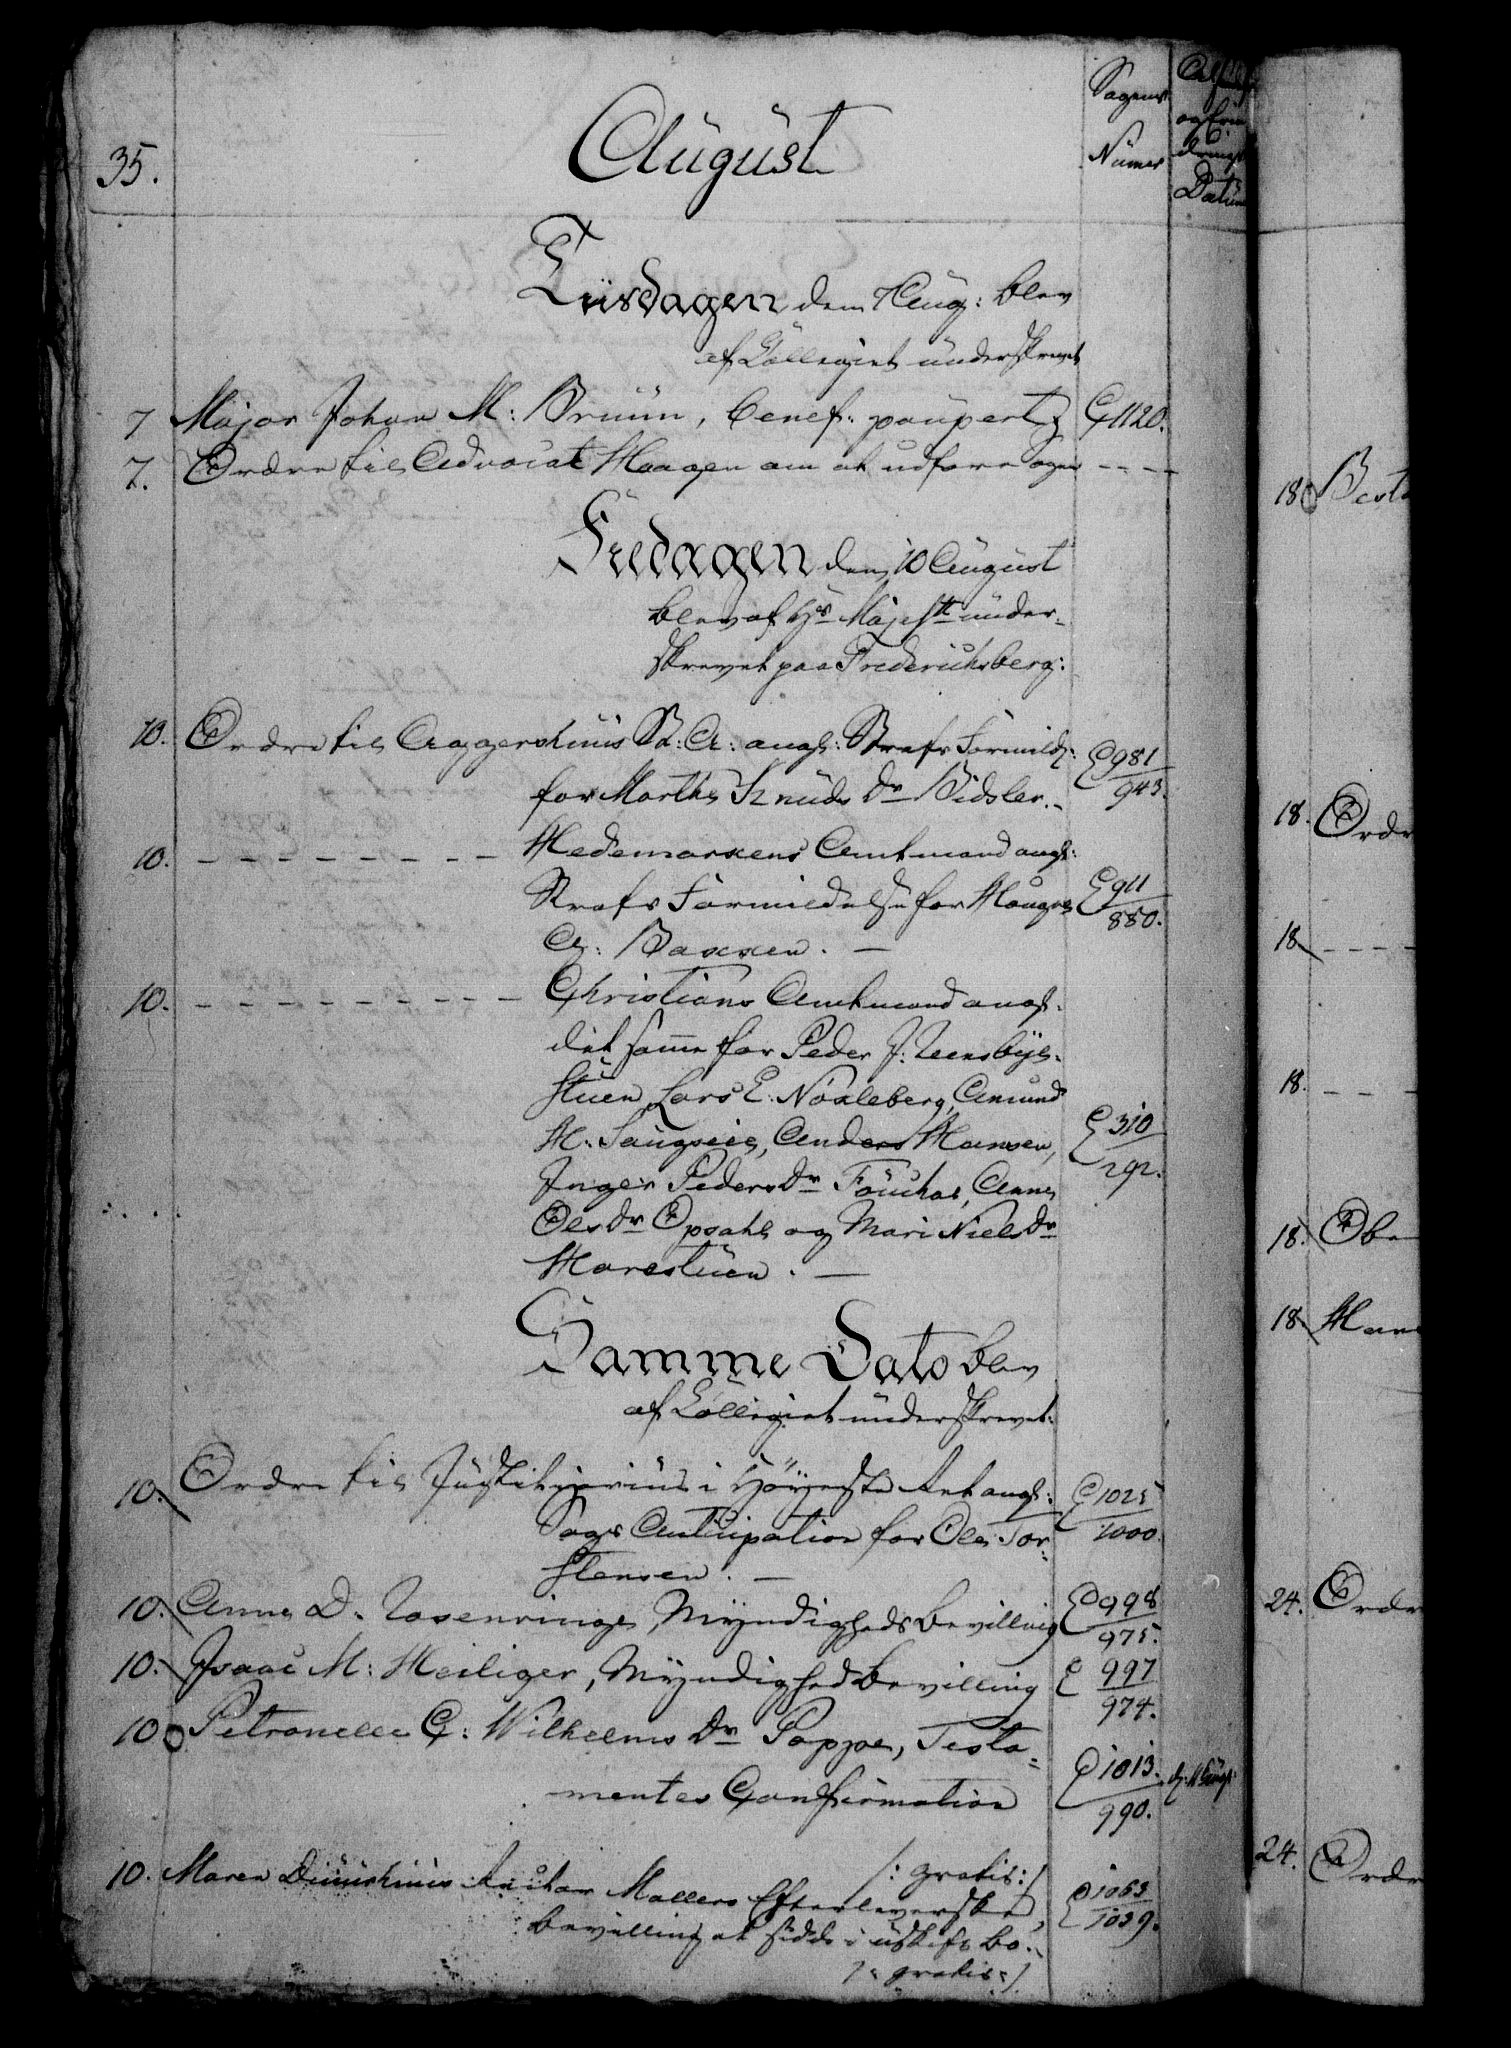 35.
August
Sagens
Numer
og
Datum
Tiisdagen den 7 Aug: blev
af Collegiet underskrevet
7 Major Johan M: Bruun, benef: paupert: C 1120.
7. Ordre til Advocat Haagen om at udføre ----
Fredagen den 10 August
blev af Hs Majestt under-
skrevet paa Frederichsberg:
10. Ordre til Aggershuus St: A: angl: Straffs Formild: E 981
for Marthe Knuds Dr Bidsler. 943.
10. - - - - - - - - Hedemarkens Amtmand angl:
Straffs Formildelse for Hougen E 911
C: Bakken. 880.
10. - - - - - - - - - Christians Amtmand angl.
det samme for Peder J:
stuen, Lars E: Nøkleberg, Amund
H: Saugveie, Anders Hansen, E 310
Inger Peders Dr , Anne 292.
Ols Dr Opsahl og Mari Niels Dr
Harestuen.
Samme Dato blev
af Collegiet underskrevet.
10. Ordre til Justitiarius i Høyeste Ret angl: E 1025
Sags Anticipation for Ole Tor= 1000
stensen.
10. Anne D. Rosenvinge, Myndigheds bevilling E 998
975.
10. Isaac M: Heiliger, Myndighed bevilling E 997
974.
10 Petronelle C: Wilhelms Dr Poppe, Testa= E 1013.
mentes Confirmation 990.
/: gratis :/
10. Maren Møllers Efterleverske, E 1063
bevilling at sidde i uskift bo. 1039.
/: gratis :/
18 Best
18. Ordr
18 - - - -
18. - - -
18. Obe
18. Han
24. Ordr
24. Ordr